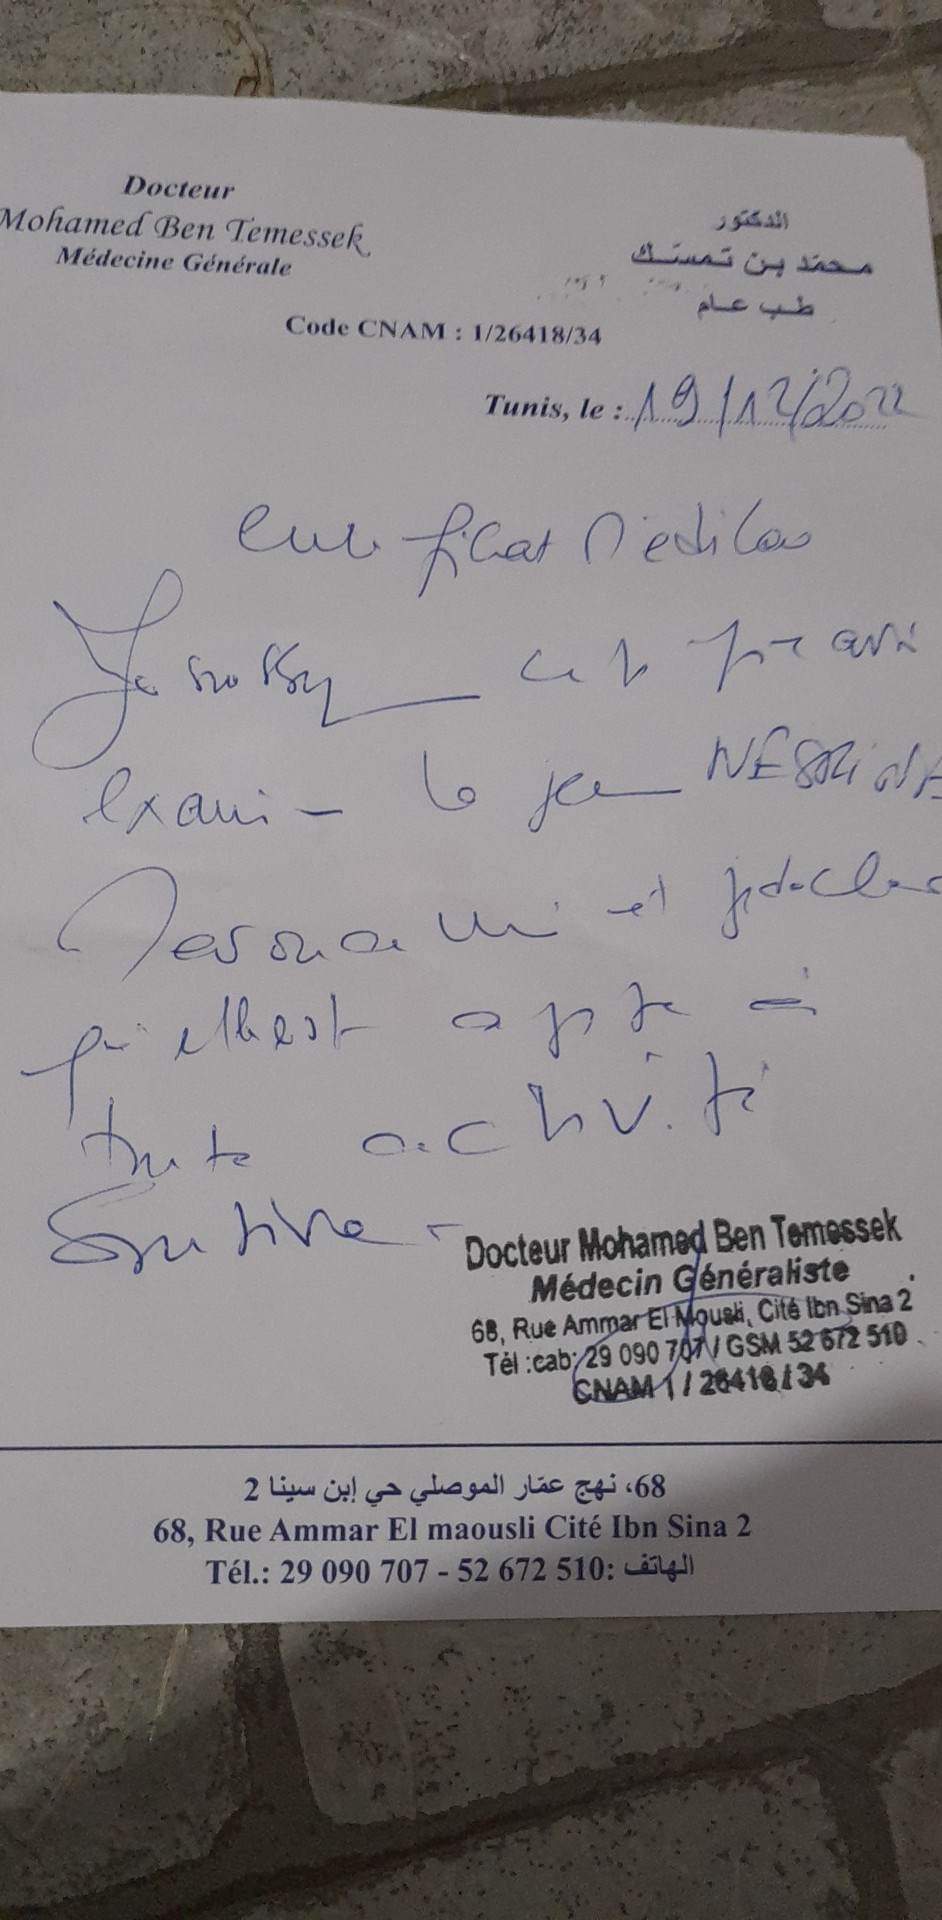 Docteur
Mohamed Ben Temessek
Médecine Générale
الدكتور
محمّد بن تمسّك
طب عام
Code CNAM : 1/26418/34
Tunis, le : 19/12/2022
Certificat Médical
Je soussigné certifie avoir
examiné le jeune NESRINE
et déclare
qu'elle est apte à
toute activité
sportive -
Docteur Mohamed Ben Temessek
Médecin Généraliste
68, Rue Ammar El Mousli, Cité Ibn Sina 2
Tél :cab: 29 090 707 / GSM 52 672 510
CNAM 1 / 26418 / 34
68، نهج عمّار الموصلي حي إبن سينا 2
68, Rue Ammar El maousli Cité Ibn Sina 2
Tél.: 29 090 707 - 52 672 510 :الهاتف